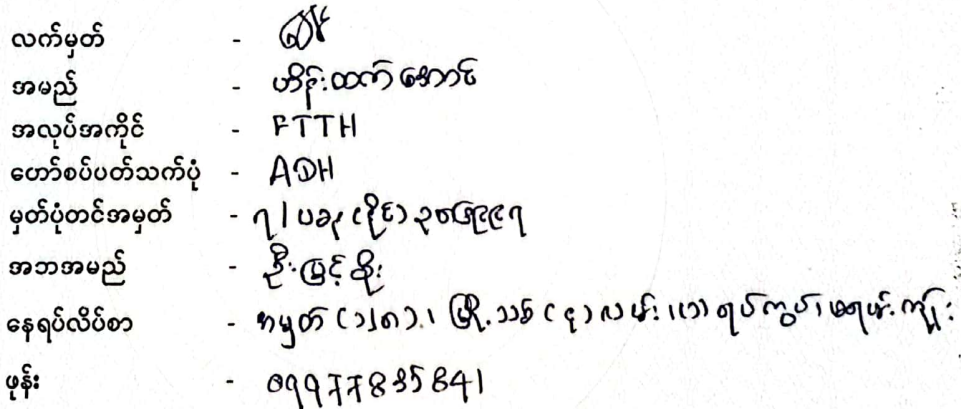 လက်မှတ် -
အမည် - ဟိန်းထက်အောင်
အလုပ်အကိုင် - FTTH
ဟော်စပ်ပတ်သက်ပုံ - ADH
မှတ်ပုံတင်အမှတ် - ၇/ပခန(နိုင်)
အဘအမည် - ဦးမြင့်စိုး
နေရပ်လိပ်စာ - အမှတ် မြို့သစ် လမ်း၊ ရပ်ကွက်၊
ဖုန်း - 09977835841